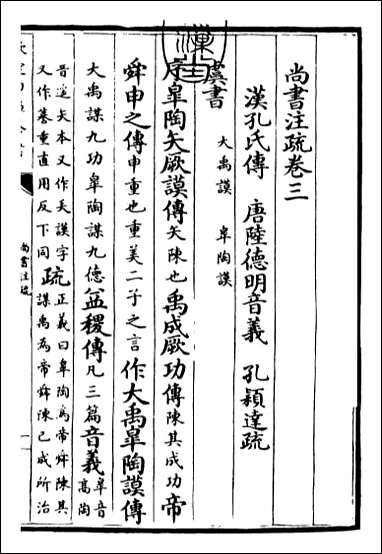 尚書注疏卷三
漢孔氏傳　唐陸德明音義　孔穎達疏
虞書
大禹謨　臯陶謨
序臯陶矢厥謨傳矢陳也禹成厥功傳陳其成功帝
舜申之傳申重也重美二子之言作大禹臯陶謨傳
大禹謀九功臯陶謀九德益稷傳凡三篇音義臯音
高陶
音遥矢本又作𡗗謨字
又作暮重直用反下同疏正義曰臯陶為帝舜陳其
謀禹為帝舜陳已成所治
尚書注疏
一